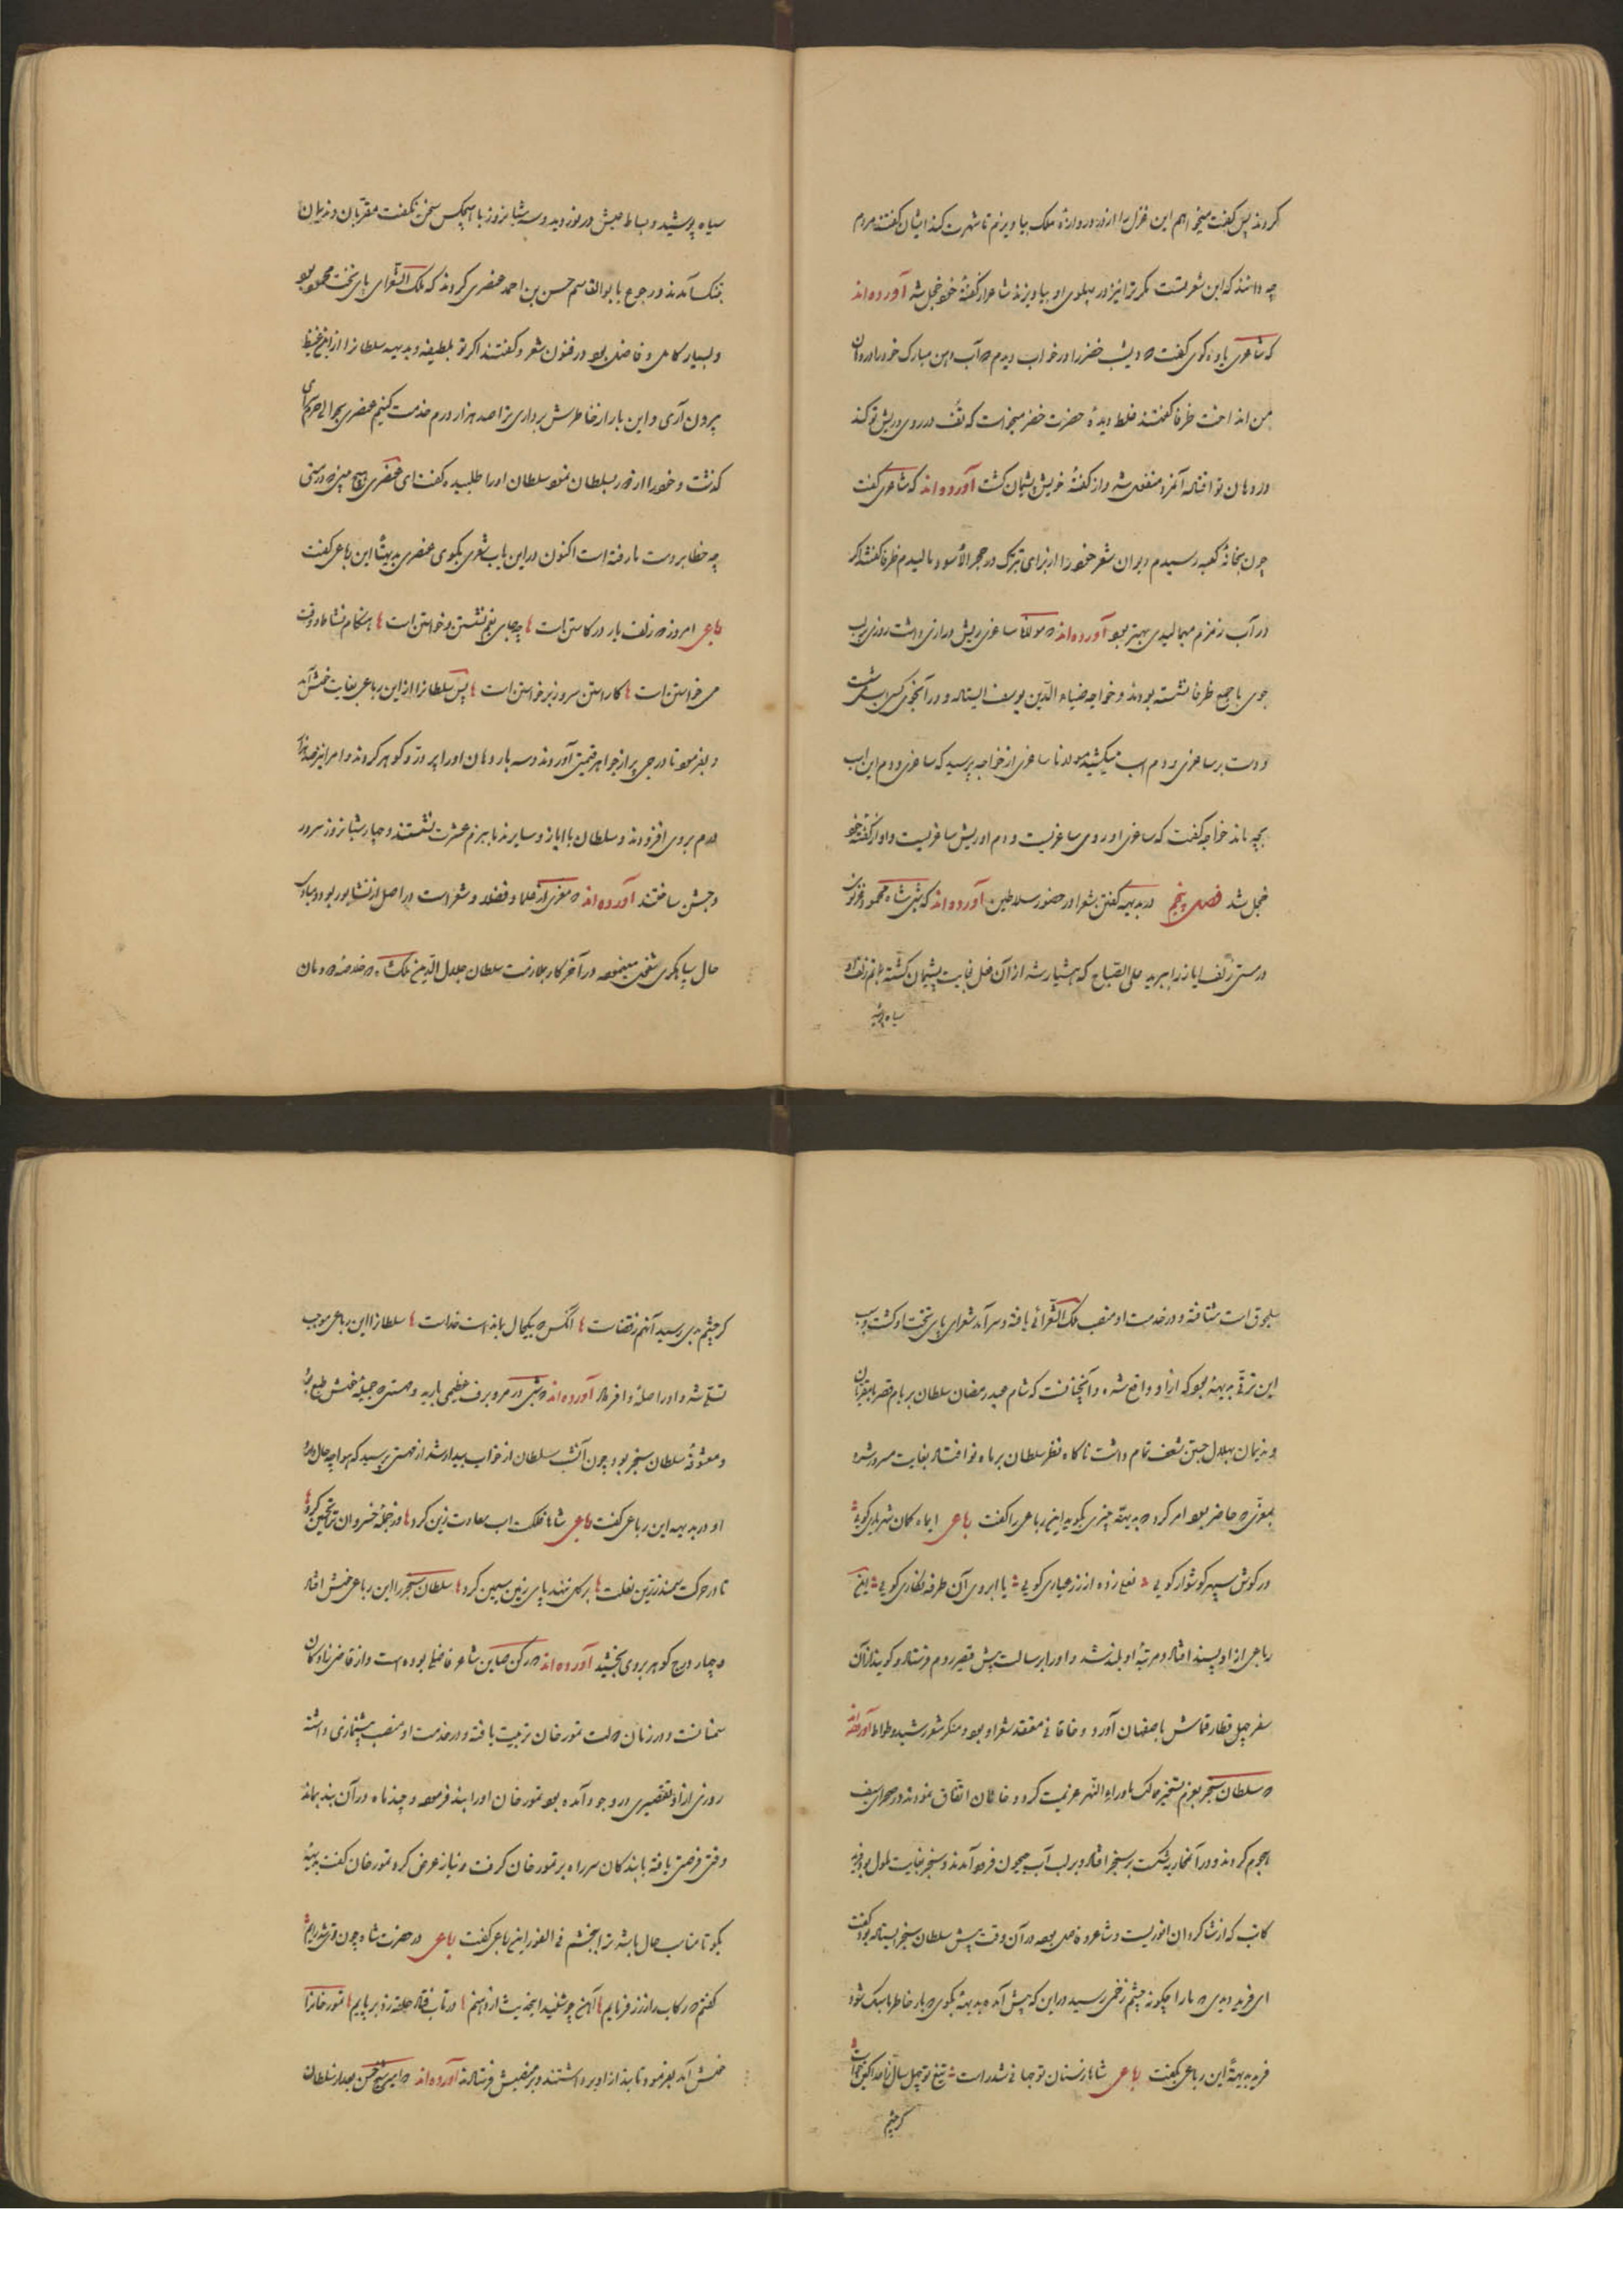 کردند پس گفت میخواهم این غزل را از در دروازه ملک بیاویزم تا شهرت کند ایشان گفتند مردم
چه دانند که این شعر تست مگر ترا نیز در پهلوی او بیاویزند شاعر از گفتهٔ خود خجل شد آورده‌اند
که شاعری یاوه کوی گفت که دیشب خضر را در خواب دیدم که آب دهن مبارک خود را در دهان
من انداخت ظرفا گفتند غلط دیدهٔ حضرت خضر میخواست که تف در روی و ریش تو کند
در دهان تو افتاد آنمرد منفعل شد و از گفتهٔ خویش پشیمان گشت آورده‌اند که شاعری گفت
چون بخانهٔ کعبه رسیدم دیوان شعر خود را از برای تبرک در حجر الأسود مالیدم ظرفا گفتند اگر
در آب زمزم میمالیدی بهتر بود آورده‌اند که مولانا ساغری ریش درازی داشت روزی بر لب
جوی با جمع ظرفا نشسته بودند و خواجه ضیاء الدین یوسف ایستاده و در آنجوی اسب
و دست بر ساغری و دم اسب میکشید مولانا ساغری از خواجه پرسید که ساغری و دم این اسب
بچه ماند خواجه گفت که ساغری او روی ساغریست و دم او ریش ساغریست و او از گفتهٔ خود
خجل شد فصل پنجم در بدیهه گفتن شعرا در حضور سلاطین آورده‌اند که شبی شاه محمود غزنوی
در مستی زلف ایاز را ببرید علی الصباح که هشیار شد از آن فعل بغایت پشیمان گشته
سیاه پوشید
سیاه پوشید و بساط عیش در نوردید و سه شبانروز با هیچکس سخن نگفت مقربان و ندیمان
بتنگ آمدند و رجوع بابو القاسم حسن بن احمد عنصری کردند که ملک الشعرای پای تخت محمود بود
و بسیار کامل و فاضل بود در فنون شعر و گفتند اگر تو بلطیفه و بدیهه سلطانرا از این غیظ
بیرون آری و این بار از خاطرش برداری ترا صد هزار درم خدمت کنیم عنصری بحوالی حریم سرای
گذشت و خود را از دور بسلطان نمود سلطان او را طلبیده گفت ای عنصری هیچ میبینی که در مستی
چه خطا بر دست ما رفته است اکنون در این باب شعری بگوی عنصری بدیهةً این رباعی گفت
رباعی امروز که زلف یار در کاستن است چه جای بغم نشستن و خواستن است هنگام نشاط و وقت
می خواستن است کاراستن سرو ز پیراستن است پس سلطانرا از این رباعی بغایت خوش آمد
و بفرمود تا درجی پر از جواهر قیمتی آوردند و سه بار دهان او را پر در و گوهر کردند و امرا نیز صد هزار
درم بروی افزودند و سلطان با ایاز و سایر ندما ببزم عشرت نشستند و چهار شبانروز سرور
و جشن ساختند آورده‌اند که معزی از علما و فضلا و شعراست در اصل از نشابور بود و مبادی
حال سپاهیگری شغل مینمود در آخر کار بملازمت سلطان جلال الدین ملک شاه که خلاصه دودمان
سلجوق است شتافته و در خدمت او منصب ملک الشعرائی یافته و سرآمد شعرای پای تخت او گشت و سبب
این ترقی بدیههٔ بود که از او واقع شده و آنچنانست که شام عید رمضان سلطان بر بام قصر با مقربان
و ندیمان بهلال جستن شعف تمام داشت ناگاه نظر سلطان بر ماه نو افتاد بغایت مسرور شده
بمعزی که حاضر بود امر کرد که بدیهه چیزی بگوید این رباعی را گفت رباعی ای ماه کمان شهریاری گویی
در گوش سپهر گوشوار گویی نعلی زده از زر عیاری گویی یا ابروی آن طرفه نگاری گویی این
رباعی از او پسند افتاد و مرتبهٔ او بلند شد و او را برسالت پیش قیصر روم فرستاد و گویند از آن
سفر چهل قطار قماش باصفهان آورد و خاقانی معتقد شعر او بود و منکر شعر رشید وطواط آورده‌اند
که سلطان سنجر بعزم تسخیر ممالک ماوراء النهر عزیمت کرد و خانان اتفاق نمودند و در صحرای سیف
هجوم کردند و در آنمحاربه شکست بر سنجر افتاد و بر لب آب جیحون فرود آمدند و سنجر بغایت ملول بود فرید
کاتب که از شاگردان انوریست و شاعر و فاضل بود در آن وقت پیش سلطان سنجر ایستاده بود گفت
ای فرید دیدی که ما را چگونه چشم زخمی رسید در این که پیش آمده بدیههٔ بگوی که بار خاطر ما سبک شود
فرید بدیههٔ این رباعی بگفت رباعی شاها ز سنان تو جهانی شد راست تیغ تو چهل سال ز اعدا کین خواست
گر چشم
گر چشم بدی رسید آنهم ز قضاست آنکس که بیکحال بماندست خداست سلطانرا این رباعی موجب
تسلّی شد و او را صلهٔ وافر داد آورده‌اند که شبی در مرو برف عظیمی بارید و مهستی که جمیلهٔ خوش طبع بود
و معشوقهٔ سلطان سنجر بود چون آنشب سلطان از خواب بیدار شد از مهستی پرسید که هوا چه حال دارد
او در بدیهه این رباعی گفت رباعی شاها فلکت اسب سعادت زین کرد وز جملهٔ خسروان ترا تحسین کرد
تا در حرکت سمند زرین نعلت بر گل ننهد پای زمین سیمین کرد سلطان سنجر را این رباعی خوش افتاد
و چهار درج گوهر بر وی بخشید آورده‌اند که رکن صاین شاعر فاضل بوده است و از قاضی زادگان
سمنانست و در زمان دولت تمورخان تربیت یافته و در خدمت او منصب پیشنمازی داشته
روزی از او تقصیری در وجود آمده بود تمورخان او را بند فرمود و چند ماه در آن بند بماند
وقتی فرصتی یافته با بند گان سر راه بر تمورخان گرفت و نیاز عرض کرد تمورخان گفت بدیههٔ
بگو تا مناسب حال باشد ترا ببخشم فی الفور این رباعی گفت رباعی در حضرت شاه چون قوی شد رایم
گفتم که رکاب را ز زر فرمایم آهن چو شنید این حدیث از دهنم در تاب فتاد حلقه زد بر پایم تمورخانرا
خوش آمد بفرمود تا بند از او برداشتند و بر منصبش فرستادند آورده‌اند که امیر شیخ حسن بعد از سلطان